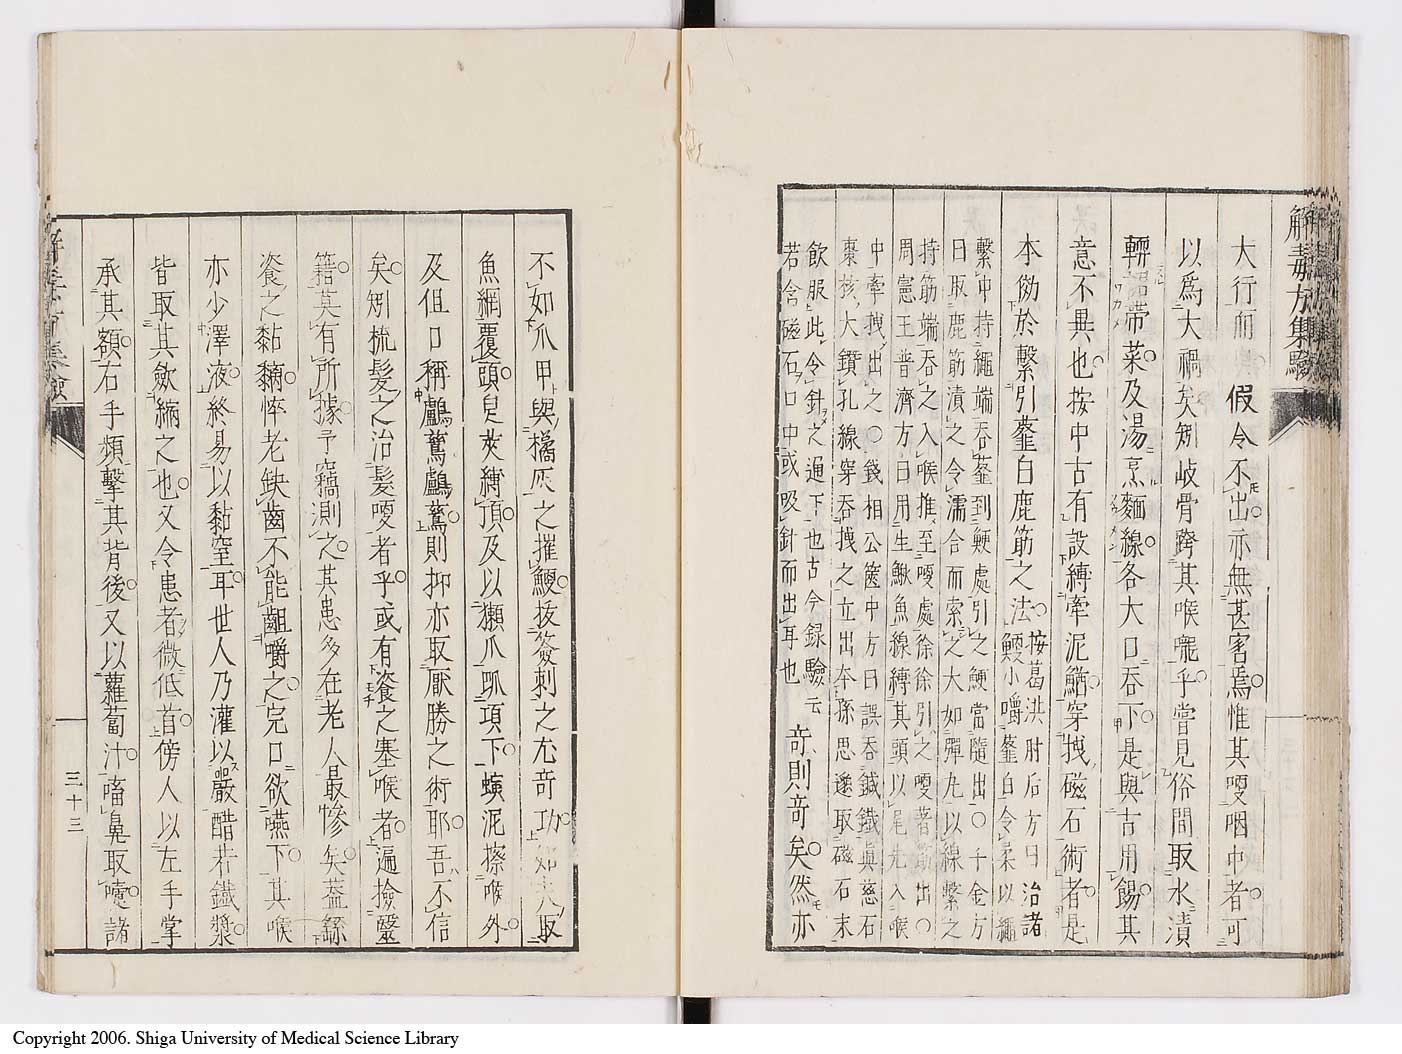 解毒方集驗
大行而 假令不出亦無甚害焉惟其哽咽中者可
以爲大禍矣矧岐骨跨其喉嚨乎嘗見俗間取水漬
輭 帶菜及湯烹麵線各大口吞下是與古用餳其
意不異也按中古有設縛牽泥鰌穿拽磁石術者是
本倣於繫引薤白鹿筋之法 按葛洪肘后方曰治諸
鯁小嚼薤白令柔以繩
繫中持繩端吞薤到鯁處引之鯁當隨出○千金方
曰取鹿筋漬之令濡合而索之大如彈丸以線繫之
持筋端吞之入喉推至哽處徐徐引之哽著筋出○
周憲王普濟方曰用生鰍魚線縛其頭以尾先入喉
中牽拽出之○錢相公篋中方曰誤吞鍼鐵眞慈石
棗核大鑽孔線穿吞拽之立出本孫思邈取磁石末
飲服此令針之通下也古今録驗云
若含磁石口中或吸針而出耳也 奇則奇矣然亦
不如爪甲與橘 之摧鯁抜簽刺之尤奇功如 取
魚網覆頭 縛頂及以獺爪 項下蟥泥擦喉外
及但口稱鸕鶿鸕鶿則抑亦取厭勝之術耶吾不信
矣矧梳髮之治髮哽者乎或有餈之塞喉者遍撿醫
籍莫有所據予竊測之其患多在老人最慘矣蓋繇
餈之黏 悴老缺齒不能齟嚼之完口欲嚥下其喉
亦少澤液終易以黏窒耳世人乃灌以嚴醋若鐵漿
皆取其斂 之也又令患者微低首傍人以左手掌
承其額右手頻擊其背後又以蘿蔔汁 鼻取嚏諸
三十三
Copyright 2006. Shiga University of Medical Science Library